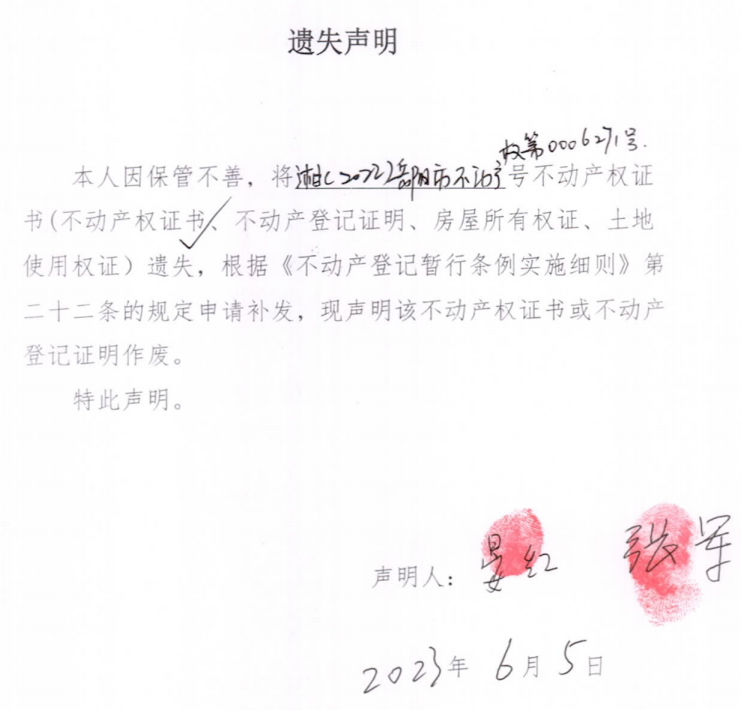 遗失声明
权第0006271号.
本人因保管不善，将湘(2022)岳阳市不动产号不动产权证
书(不动产权证书、不动产登记证明、房屋所有权证、土地
使用权证）遗失，根据《不动产登记暂行条例实施细则》第
二十二条的规定申请补发，现声明该不动产权证书或不动产
登记证明作废。
特此声明。
声明人：晏红 张军
2023年6月5日